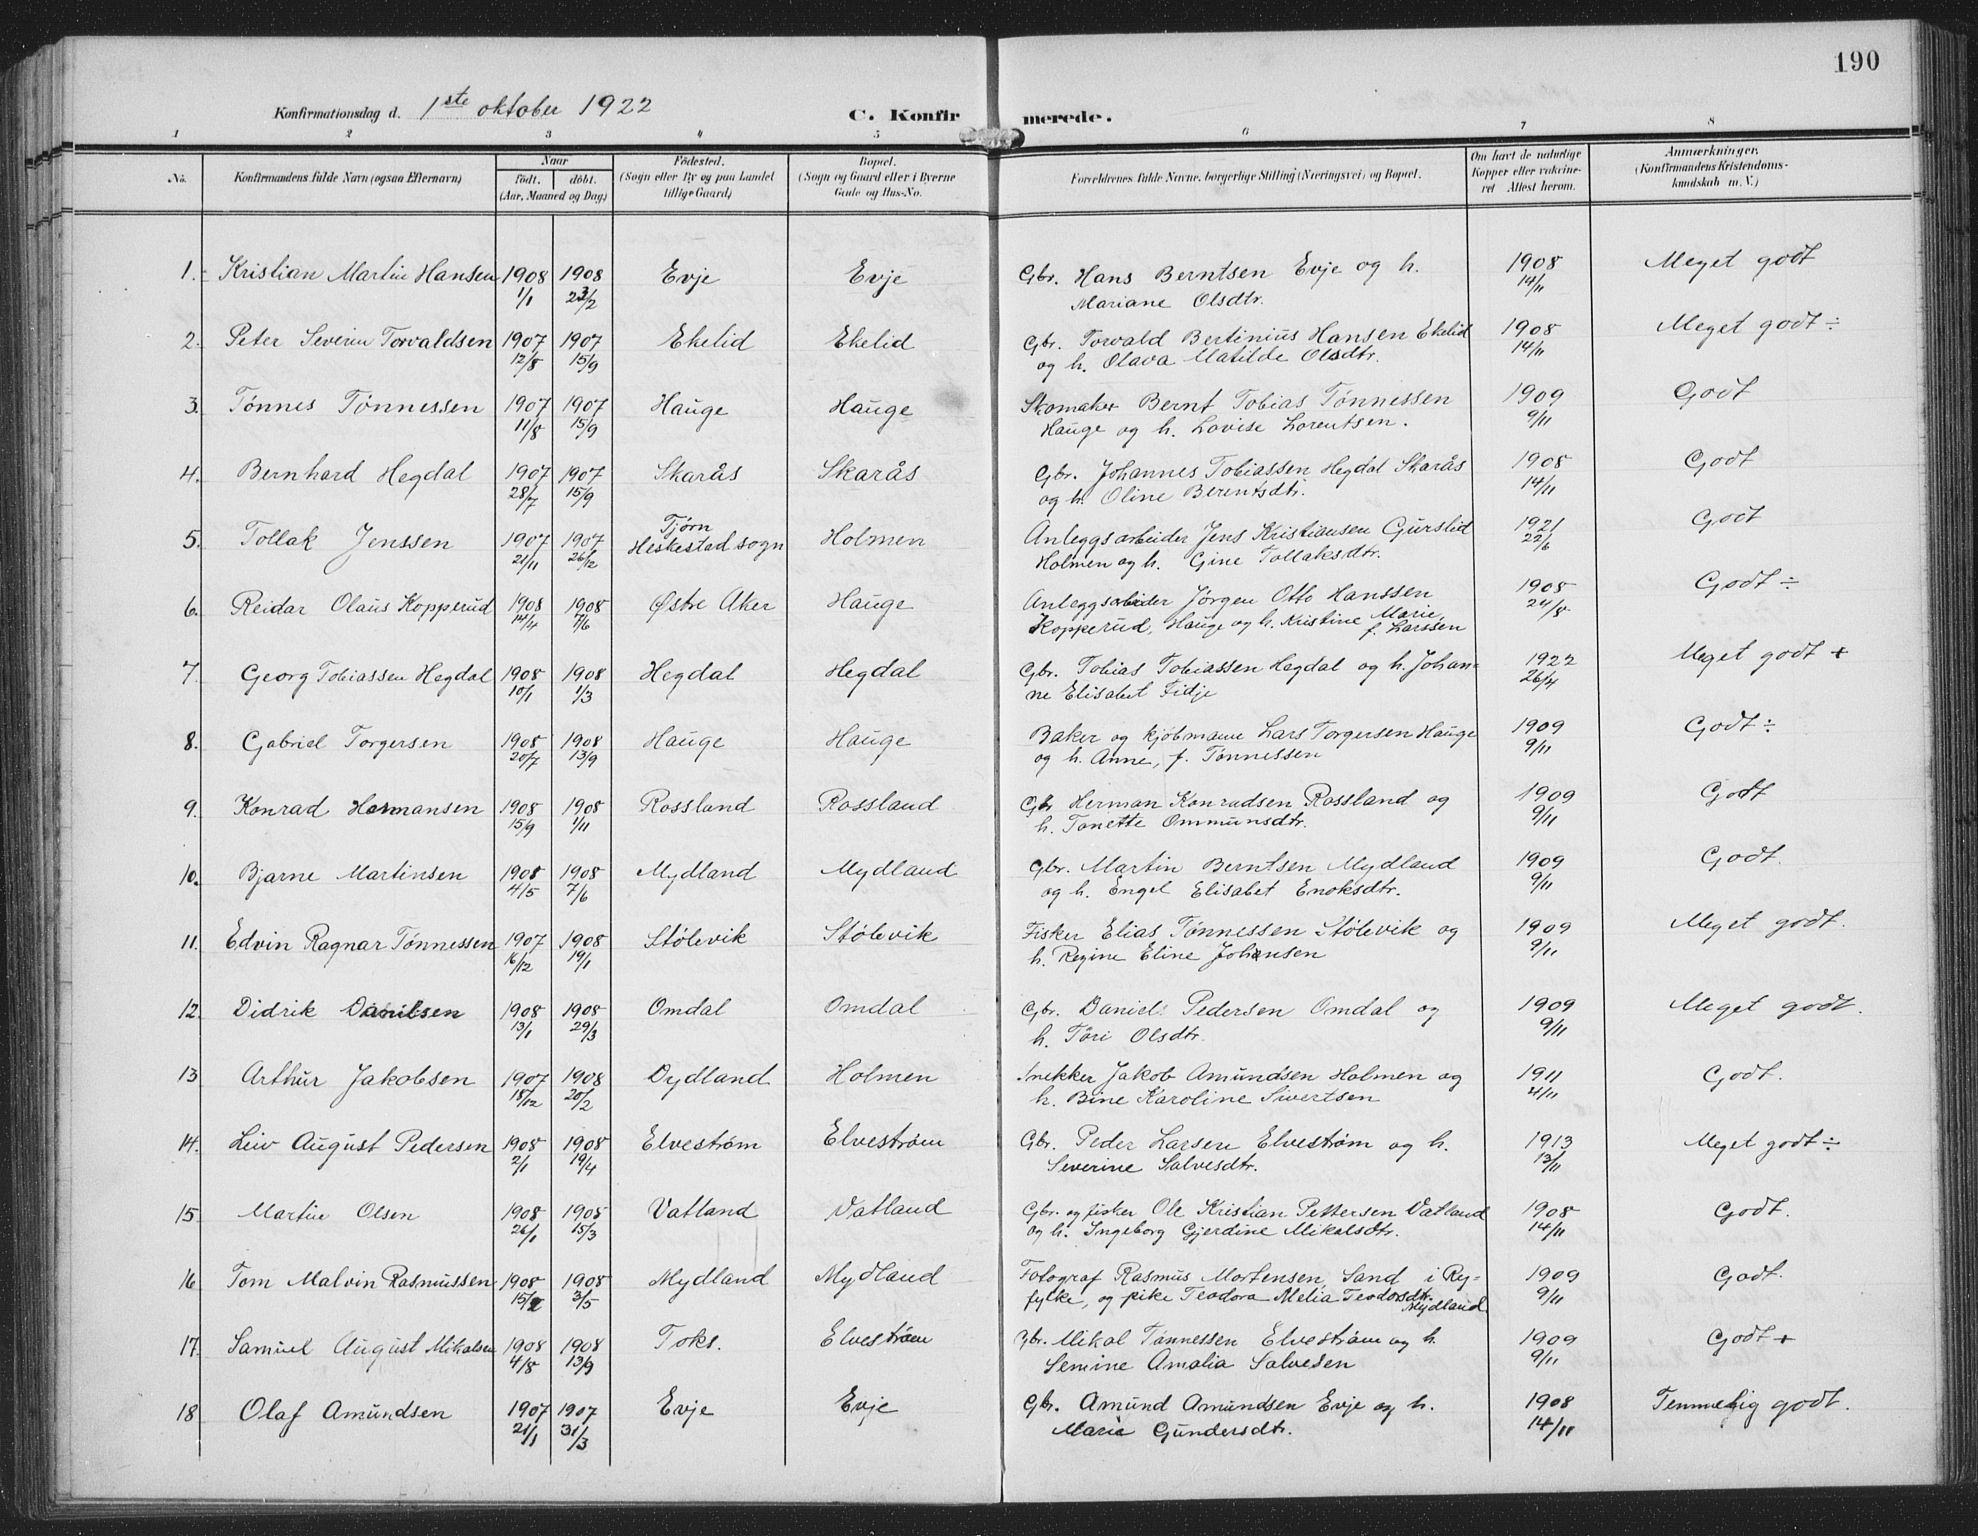 190
Konfirmationsdag d. 1ste oktober 1922 C. Konfir merede.
1 2 3 4 5 6 7 8
No. Konfirmandens fulde Navn (ogsaa Efternavn) Naar Födested. Bopæl. Forældrenes fulde Navne, borgerlige Stilling (Næringsvei) og Bopæl. Om havt de naturlige Anmærkninger.
födt. döbt. (Sogn eller By og paa Landet (Sogn og Gaard eller i Byerne Kopper eller vakcine- (Konfirmandens Kristendoms-
(Aar, Maaned og Dag) tillige Gaard) Gade og Hus-No. ret Attest herom. kundskab m. V.)
1. Kristian Martin Hansen 1908 1908 Evje Evje Gbr. Hans Berntsen Evje og h. 1908 Meget godt
1/1 23/2 Mariane Olsdtr. 14/11
2. Peter Severin Torvaldsen 1907 1907 Ekelid Ekelid Gbr. Torvald Bertinius Hansen Ekelid 1908 Meget godt ÷
12/8 15/9 og h. Olava Matilde Olsdtr. 14/11
3. Tönnes Tönnessen 1907 1907 Hauge Hauge Skomaker Bernt Tobias Tönnessen 1909 Godt
11/8 15/9 Hauge og h. Lovise Lorentsen. 9/11
4. Bernhard Hegdal 1907 1907 Skarås Skarås Gbr. Johannes Tobiassen Hegdal Skarås 1908 Godt
28/7 15/9 og h. Oline Berentsdtr. 14/11
5. Tollak Jenssen 1907 1907 Tjörn Holmen Anleggsarbeider Jens Kristiansen Gurslid 1921 Godt
21/11 26/12 Heskestad sogn Holmen og h. Gine Tollaksdtr. 22/6
6. Reidar Olaus Kopperud 1908 1908 Østre Aker Hauge Anleggsarbeider Jørgen Otto Hanssen 1908 Godt ÷
14/4 7/6 Kopperud, Hauge og h. Kristine Marie, f. Larssen 24/8
7. Georg Tobiassen Hegdal 1908 1908 Hegdal Hegdal Gbr. Tobias Tobiassen Hegdal og h. Johan- 1922 Meget godt +
10/1 1/3 ne Elisabet Fidje 26/4
8. Gabriel Torgersen 1908 1908 Hauge Hauge Baker og kjöbmann Lars Torgersen Hauge 1909 Godt ÷
20/7 13/9 og h. Anne, f. Tönnessen 9/11
9. Konrad Hermansen 1908 1908 Rossland Rossland Gbr Herman Konradsen Rossland og 1909 Godt
15/9 1/11 h. Tonette Ommunsdtr. 9/11
10. Bjarne Martinsen 1908 1908 Mydland Mydland Gbr. Martin Berntsen Mydland 1909 Godt.
4/5 7/6 og h. Engel Elisabet Enoksdtr. 9/11
11. Edvin Ragnar Tönnessen 1907 1908 Stölevik Stölevik Fisker Elias Tönnessen Stölevik og 1909 Meget godt.
16/12 19/1 h. Regine Eline Johansen 9/11
12. Didrik Danielsen 1908 1908 Omdal Omdal Gbr. Daniel Pedersen Omdal og 1909 Meget godt.
13/1 29/3 h. Tori Olsdtr. 9/11
13 Arthur Jakobsen 1907 1908 Dydland Holmen Snekker Jakob Amundsen Holmen og 1911 Godt.
18/12 20/2 h. Bine Karoline Sivertsen 4/11
14. Leiv August Pedersen 1908 1908 Elveström Elveström Gbr. Peder Larsen Elveström og h. 1913 Meget godt ÷
2/1 19/4 Severine Salvesdtr. 13/11
15. Martin Olsen 1908 1908 Vatland Vatland Gbr. og fisker Ole Kristian Pettersen Vatland 1908 Godt.
26/1 15/3 og h. Ingeborg Gjerdine Mikalsdtr. 14/11
16 Tom Malvin Rasmussen 1908 1908 Mydland Mydland Fotograf Rasmus Mortensen, Sand i Ry- 1909 Godt.
3/5 fylke, og pike Teodora Melia Teodorsdtr. Mydland 9/11
17. Samuel August Mikalsen 1908 1908 Toks. Elveström Gbr. Mikal Tönnessen Elveström og h. 1909 Godt +
4/8 13/9 Semine Amalia Salvesen 9/11
18 Olaf Amundsen 1907 1907 Evje Evje Gbr. Amund Amundsen Evje og h. 1908 Temmelig godt.
21/1 31/3 Maria Gundersdtr. 14/11